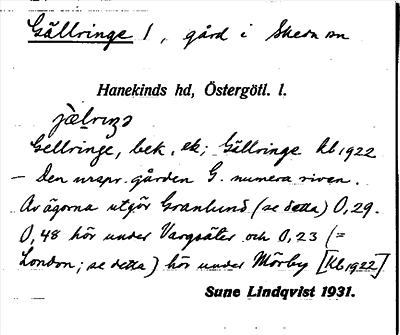 Gällringe 1, gård i Skeda sn
Hanekinds hd, Östergötl. l.
jä̀lrıŋə
Gellringe, bek. ek; Gällringe kb 1922
— Den urspr. gården G. numera riven.
Av ägorna utgör Granlund (se detta) 0,29.
0,48 hör under Vargsäter och 0,23 (=
London; se detta) hör under Mörby [Kb 1922]
Sune Lindqvist 1931.